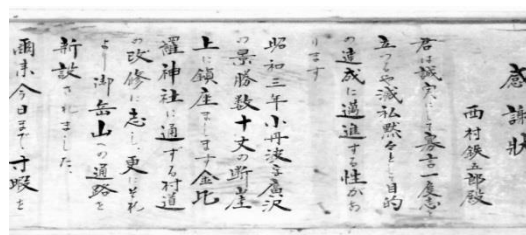 感謝狀
西村鉄一郎殿
君は誠実にして寡言一度志を
立つるや滅私黙々として目的
の達成に邁進する性があ
ります
昭和三年小丹波字廣沢
の景勝数十丈の断崖
上に鎮座まします金比
羅神社に通ずる村道
の改修に志し、更にそれ
より御岳山への通路を
新設されました、
爾来今日まで寸暇を